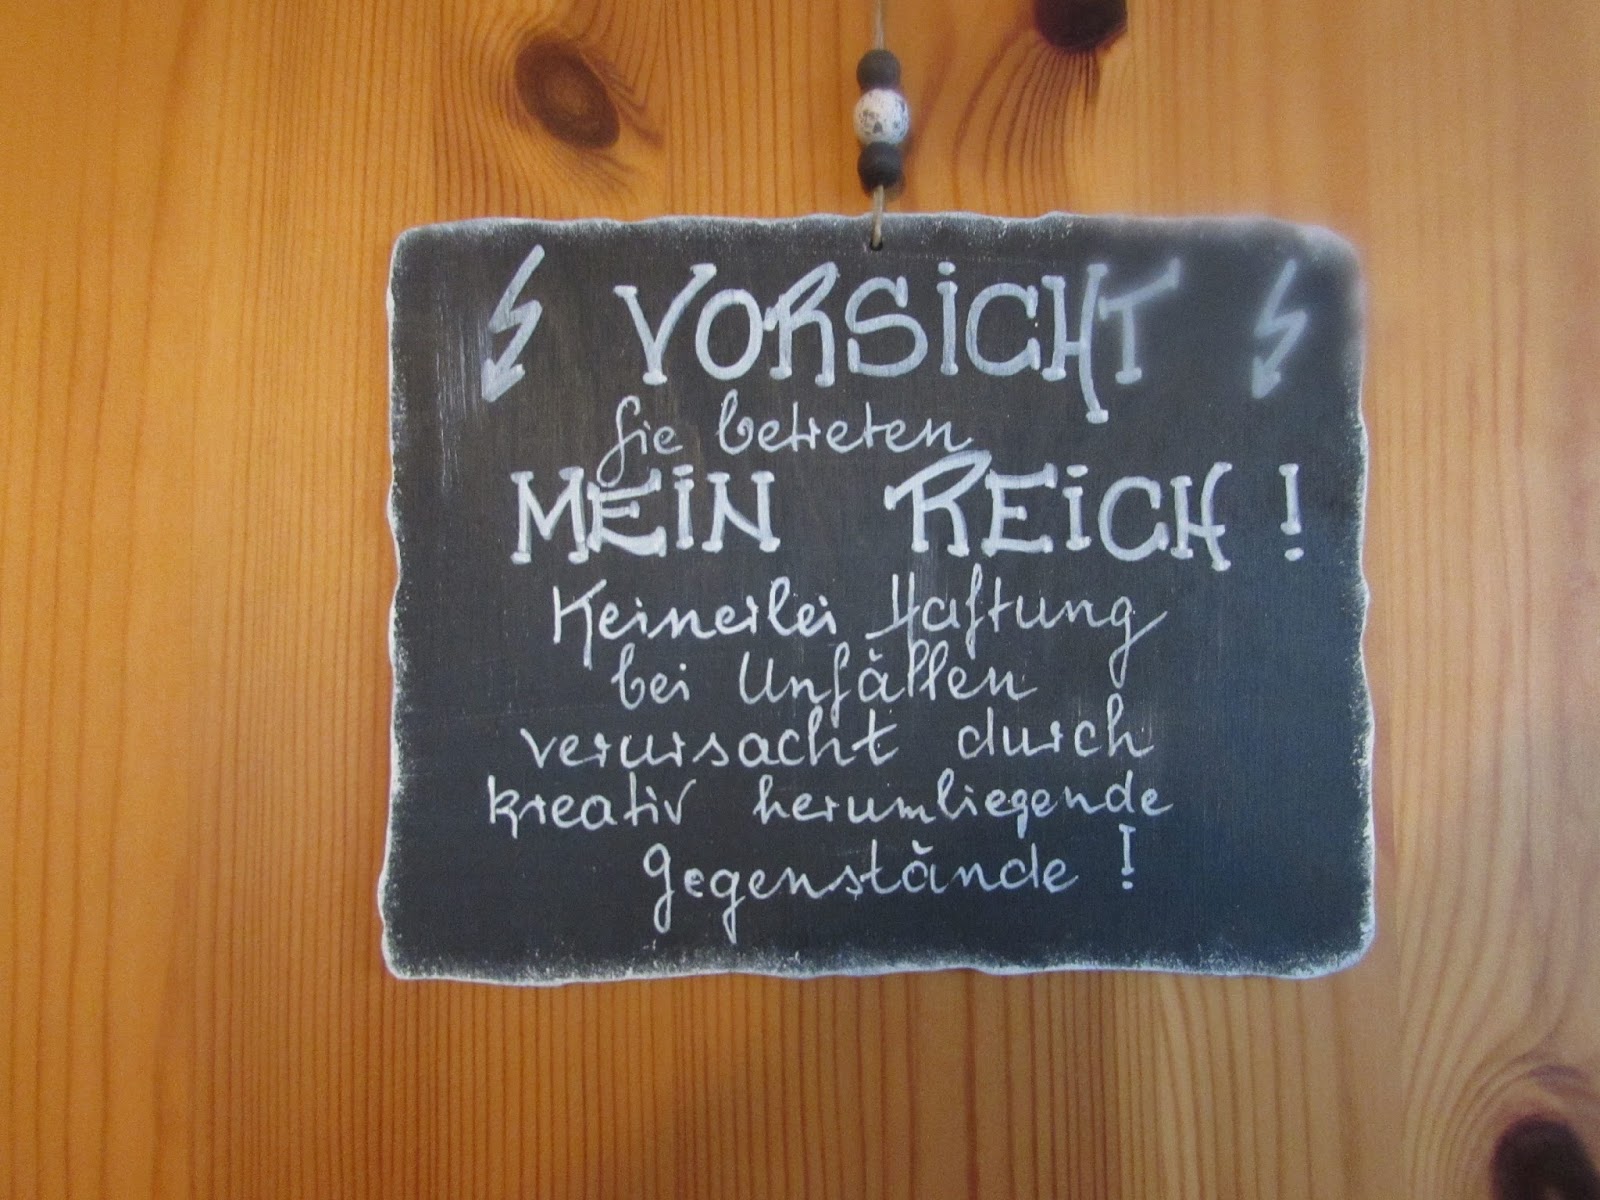 VORSICHT
Sie betreten
MEIN REICH !
Keinerlei Haftung
bei Unfällen
verursacht durch
kreativ herumliegende
Gegenstände !